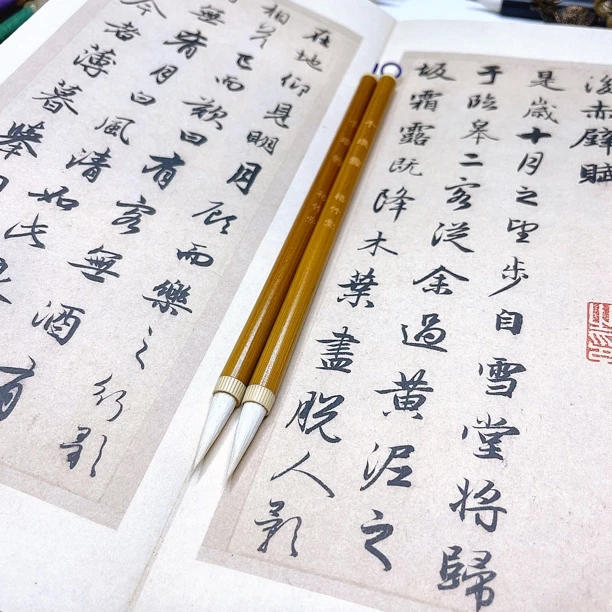 後赤壁賦
是歲十月之望步自雪堂將歸
于臨皋二客從余過黃泥之
坂霜露既降木葉盡脫人影
在地仰見明月顧而樂之行影
相答已而歎曰有客無酒有
無肴月白風清如此良
今者薄暮舉